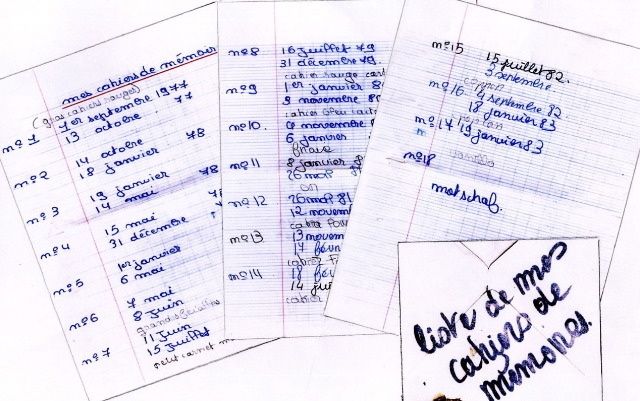 mes cahiers de mémoir
(gros cahiers rouges)
n°1 1er septembre 1977
13 octobre 77
n°2 14 octobre
18 janvier 78
n°3 19 janvier 78
14 mai
n°4 15 mai
31 décembre
n°5 1er janvier
6 mai
n°6 7 mai
8 juin
n°7 11 juin
15 juillet
petit carnet m
n°8 16 juillet 79
31 décembre 79.
cahier rouge cart
n°9 1er janvier 80
3 novembre 80
n°10. 4 novembre 8
6 janvier
n°11 8 janvier
26 mai
n°12 26 mai 81
12 novem
n°13 13 novem
17 févri
n°14 18 fév
14 jui
cahier
n°15 15 juillet 82.
3 septembre.
n°16. 4 septembre 82
18 janvier 83
n°17 19 janvier 83
n°18
motschaf.
liste de mes
cahiers de
mémoires.